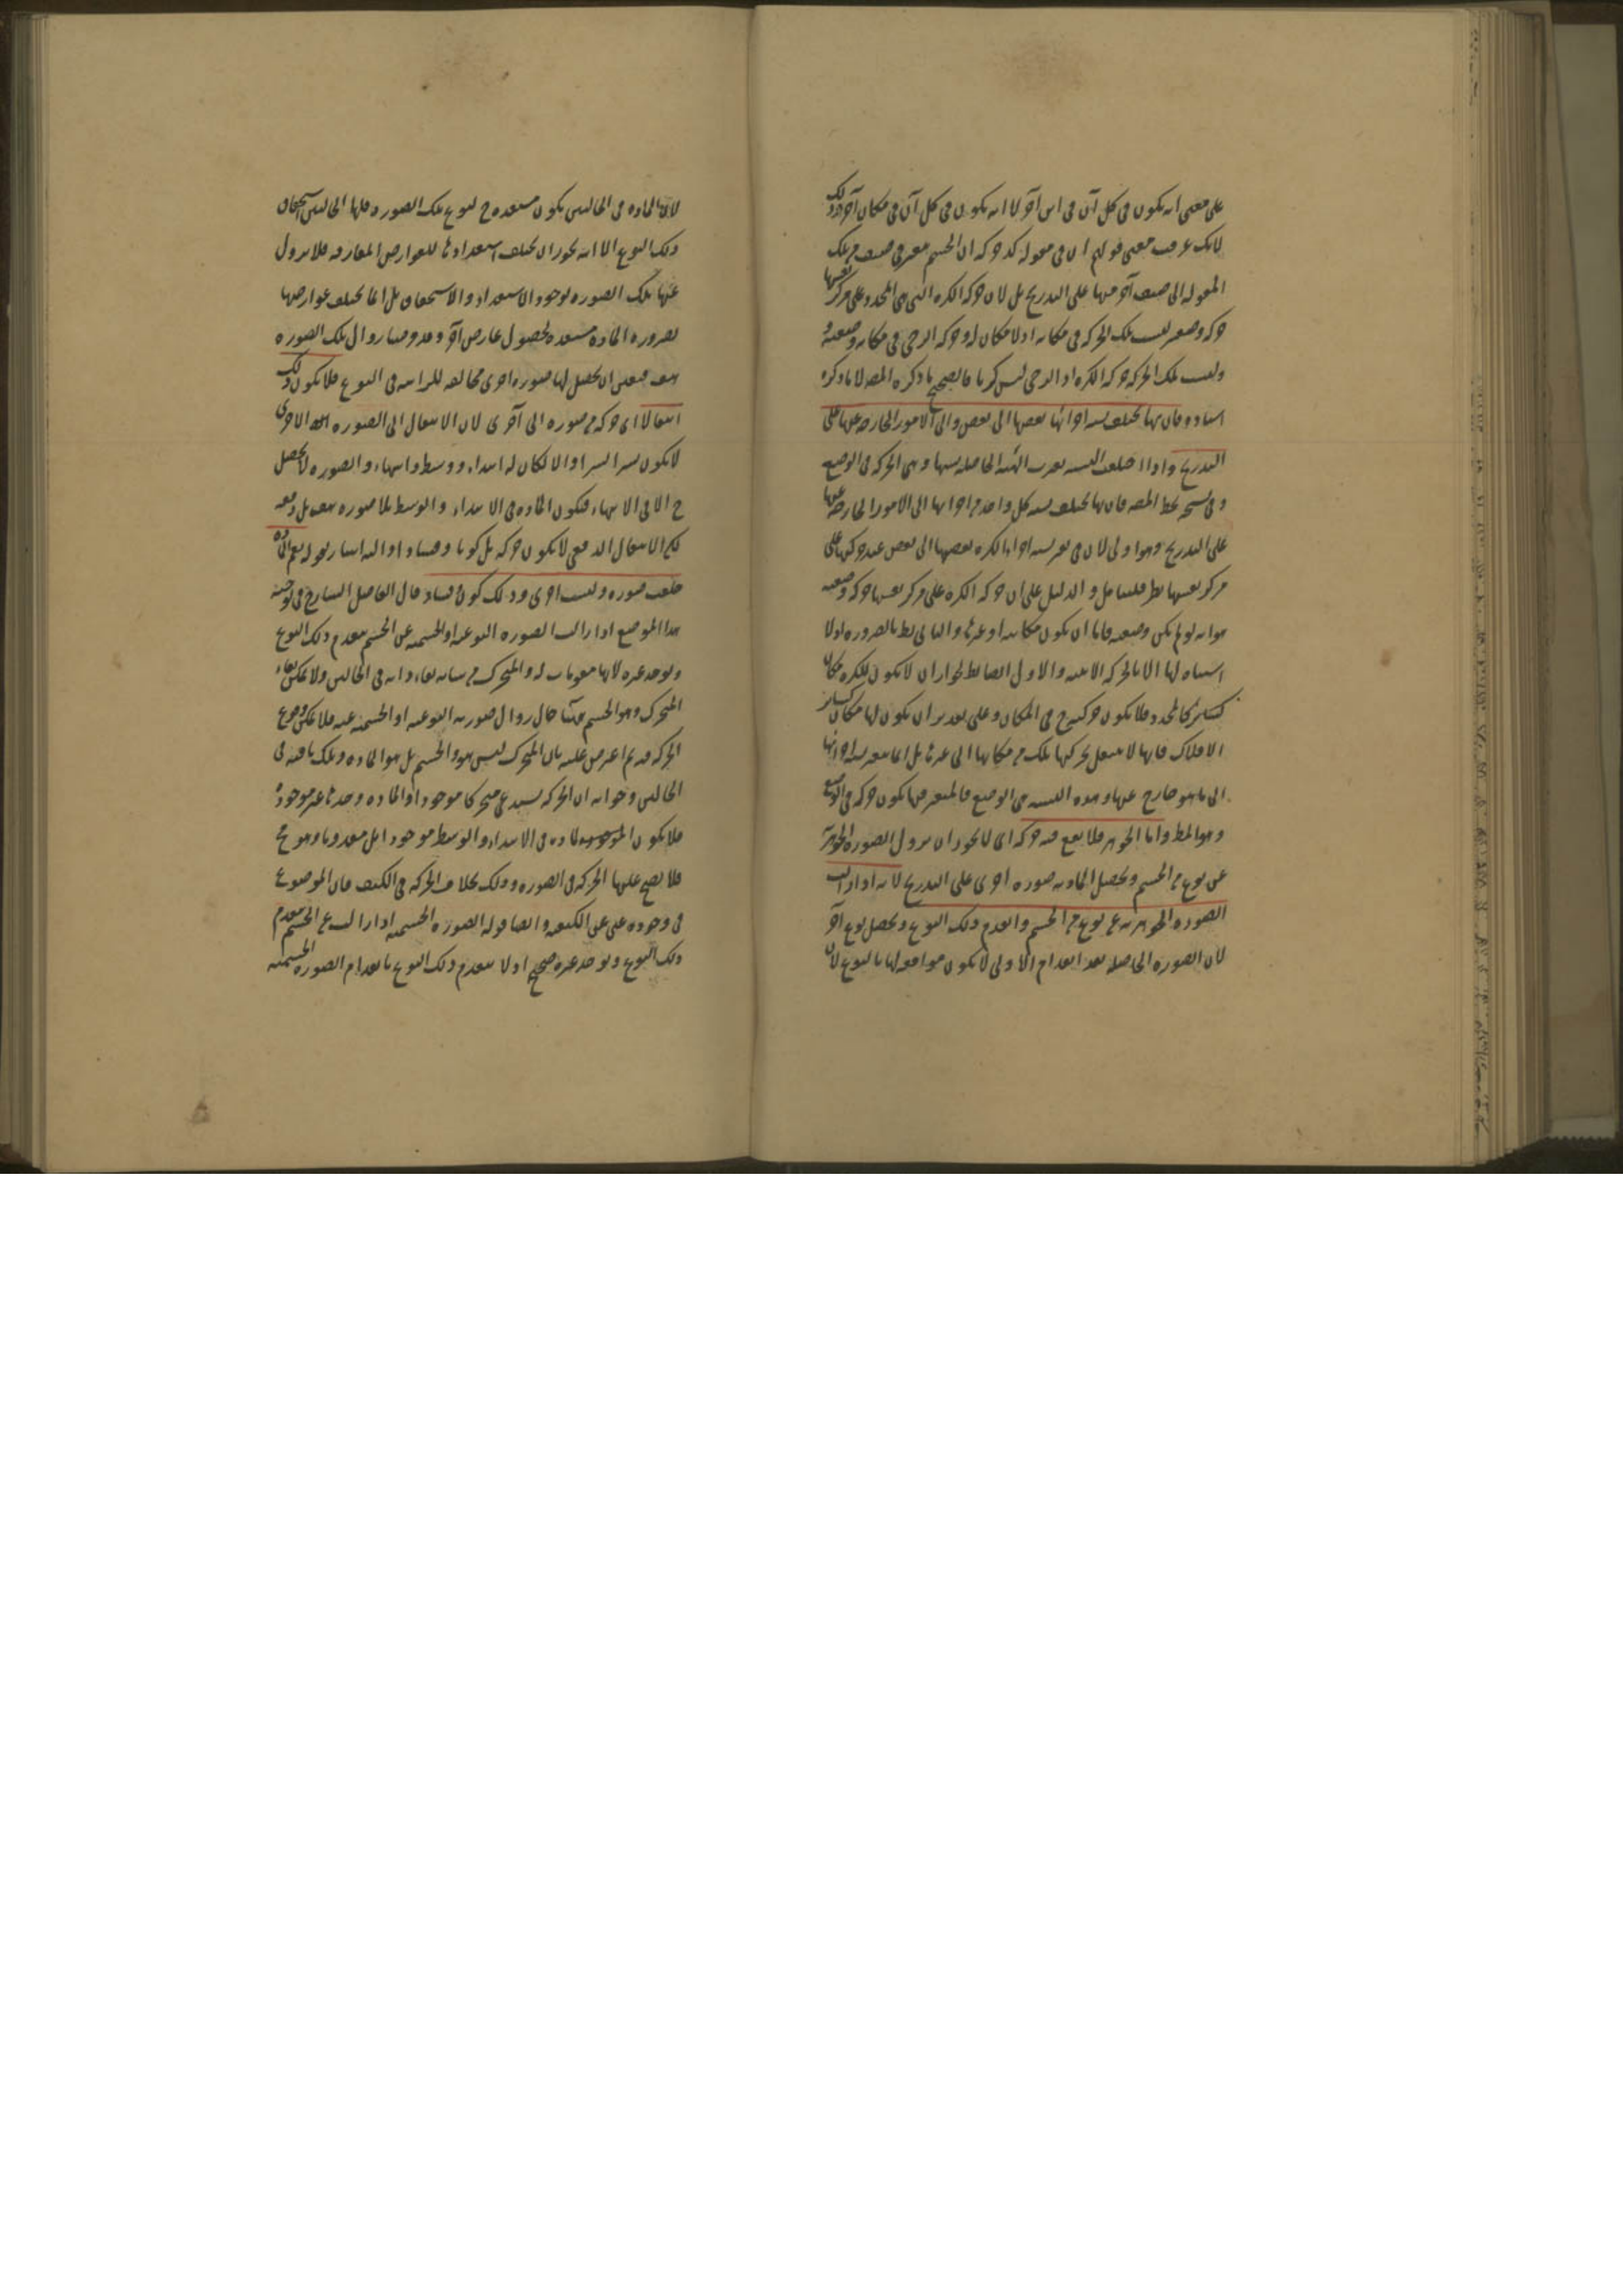 على معنى انه يكون فى كل آن فى اين آخر لا انه يكون فى كل آن فى مكان آخر وذلك
لانك عرفت معنى قولهم ان فى مقولة كذا حركة ان الجسم يتغير من صنف من تلك
المقولة الى صنف آخر منها على التدريج بل لان حركة الكرة التى هى المحدد على مركز نفسها
حركة وضعية ليست تلك الحركة فى مكان اذ لا مكان له وحركة الرحى فى مكانه وضعية و
ليست تلك الحركة حركة الكرة اذ الرحى ليس كريا فالصحيح ما ذكره المص لا ما ذكره
استاده فان بها تختلف نسبة اجزائها بعضها الى بعض والى الامور الخارجة عنها على
التدريج واذا اختلفت النسبة تغيرت الهيئة الحاصلة بسببها وهى الحركة فى الوضع
وفى نسخة بخط المص فان بها تختلف نسبة كل واحد من اجزائها الى الامور الخارجة عنها
على التدريج وهو اولى لان فى تغير نسبة اجزاء الكرة بعضها الى بعض عند حركتها على
مركز نفسها نظر فليتأمل والدليل على ان حركة الكرة على مركز نفسها حركة وضعية
هو انه لو لم يكن وضعية فاما ان يكون مكانية او غيرها والتالى بط بالضرورة اذ لا
اشتباه لها الا بالحركة الاينية والاول ايضا بط لجواز ان لا يكون للكرة مكان
كالمحدد فلا يكون حركته ح فى المكان وعلى تقدير ان يكون لها مكان كسائر
الافلاك فانها لا تنتقل بحركتها تلك من مكانها الى غيرها بل انما تتغير نسبة اجزائها
الى ما هو خارج عنها وهذه النسبة هى الوضع فالمتغير منها يكون حركة فى الوضع
وهو المط واما الجوهر فلا يقع فيه حركة اى لا يجوز ان يزول الصورة الجوهرية
عن نوع من الجسم ويحصل لمادته صورة اخرى على التدريج لانه اذا زالت
الصورة الجوهرية عن نوع من الجسم وانعدم ذلك النوع ويحصل نوع آخر
لان الصورة الحاصلة بعد انعدام الاولى لا يكون موافقة لها بالنوع لان
لان المادة فى الحالتين يكون مستعدة ح لنوع تلك الصورة ولها فى الحالتين استحقاق
ذلك النوع الا انه يجوز ان يختلف استعدادها للعوارض المفارقة فلا يزول
عنها تلك الصورة لوجود الاستعداد والاستحقاق بل انما يختلف عوارضها
لصيرورة المادة مستعدة لحصول عارض آخر وقد فرضنا زوال تلك الصورة
هف فتعين ان يحصل لها صورة اخرى مخالفة للزائلة فى النوع فلا يكون ذلك
انتقالا اى حركة من صورة الى آخرى لان الانتقال الى الصورة الاخرى
لا يكون يسيرا يسيرا والا لكان له ابتداء ووسط وانتهاء والصورة لا يحصل
ح الا فى الانتهاء فيكون المادة فى الابتداء والوسط بلا صورة هف بل دفعة
لكن الانتقال الدفعى لا يكون حركة بل كونا وفسادا واليه اشار بقوله نعم المادة
خلعت صورة ولبست اخرى وذلك كون وفساد قال الفاضل الشارح فى توجيه
هذا الموضع اذا زالت الصورة النوعية او الجسمية عن الجسم ينعدم ذلك النوع
ويوجد غيره لانها مقومات له والمتحرك من شانه بقاء ذاته فى الحالتين ولا يمكن بقاء
المتحرك وهو الجسم هيهنا حال زوال صورته النوعية او الجسمية عنه فلا يمكن وقوع
الحركة فيه ثم اعترض عليه بان المتحرك ليس هو الجسم بل هو المادة وتلك باقية فى
الحالتين وجوابه ان الحركة يستدعى متحركا موجودا والمادة وحدها غير موجودة
فلا يكون المادة فى الابتداء والوسط موجودا بل معدوما وهو مح
فلا يصح عليها الحركة فى الصورة وذلك بخلاف الحركة فى الكيف فان الموضوع
فى وجوده غنى عن الكيفية وايضا قوله الصورة الجسمية اذا زالت عن الجسم ينعدم
ذلك النوع ويوجد غيره صحيح اذ لا ينعدم ذلك النوع بانعدام الصورة الجسمية